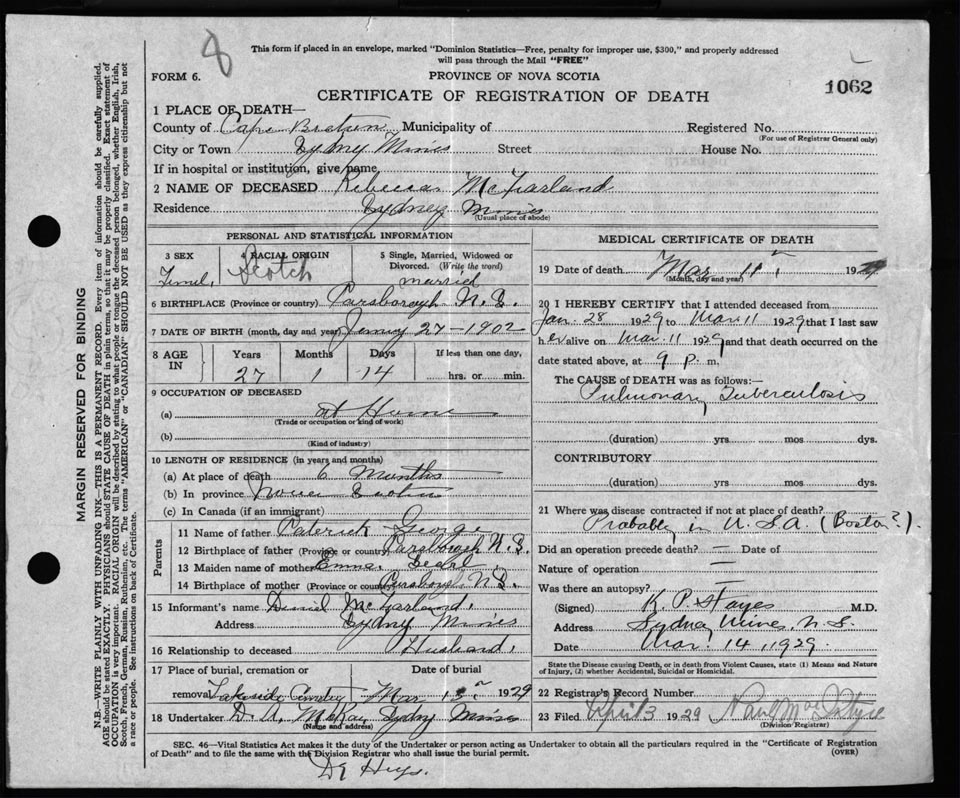 8
This form if placed in an envelope, marked "Dominion Statistics—Free, penalty for improper use, $300," and properly addressed
will pass through the Mail "FREE"
FORM 6.
PROVINCE OF NOVA SCOTIA
1062
CERTIFICATE OF REGISTRATION OF DEATH
MARGIN RESERVED FOR BINDING
N.B.—WRITE PLAINLY WITH UNFADING INK—THIS IS A PERMANENT RECORD. Every item of information should be carefully supplied.
AGE should be stated EXACTLY. PHYSICIANS should STATE CAUSE OF DEATH in plain terms, so that it may be properly classified. Exact statement of
OCCUPATION is very important. RACIAL ORIGIN will be described by stating to what people or tongue the deceased person belonged, whether English, Irish,
Scotch, French, German, Russian, Ruthenian, etc. The terms "AMERICAN" or "CANADIAN" SHOULD NOT BE USED as they express citizenship but not
a race or people. See instructions on back of Certificate.
1 PLACE OF DEATH—
County of Cape Breton Municipality of Registered No.
(For use of Registrar General only)
City or Town Sydney Mines Street House No.
If in hospital or institution, give name
2 NAME OF DECEASED Rebecca McFarland
Residence Sydney Mines
(Usual place of abode)
PERSONAL AND STATISTICAL INFORMATION
3 SEX 4 RACIAL ORIGIN 5 Single, Married, Widowed or
Divorced. (Write the word)
Scotch married
6 BIRTHPLACE (Province or country) Parsborough N.S.
7 DATE OF BIRTH (month, day and year) 27 - 1902
8 AGE IN Years Months Days If less than one day,
27 1 14 hrs. or min.
9 OCCUPATION OF DECEASED
(a) at Home
(Trade or occupation or kind of work)
(b)
(Kind of industry)
10 LENGTH OF RESIDENCE (in years and months)
(a) At place of death 6 Months
(b) In province Nova Scotia
(c) In Canada (if an immigrant)
Parents
11 Name of father George
12 Birthplace of father (Province or country) Parsborough N.S.
13 Maiden name of mother Emma
14 Birthplace of mother (Province or country) N.S.
15 Informant's name Daniel McFarland,
Address Sydney Mines
16 Relationship to deceased Husband,
17 Place of burial, cremation or Date of burial
removal Lakeside Mar 1929
18 Undertaker D. A. McKay Sydney Mines
(Name and address)
MEDICAL CERTIFICATE OF DEATH
19 Date of death Mar 11 1929
(Month, day and year)
20 I HEREBY CERTIFY that I attended deceased from
Jan. 28 1929 to Mar 11 1929 that I last saw
her alive on Mar. 11 1929 and that death occurred on the
date stated above, at 9 p. m.
The CAUSE OF DEATH was as follows:—
Pulmonary Tuberculosis
(duration) yrs mos dys.
CONTRIBUTORY
(duration) yrs. mos dys.
21 Where was disease contracted if not at place of death?
Probably in U.S.A. (Boston?).
Did an operation precede death? — Date of
Nature of operation —
Was there an autopsy? —
(Signed) K. P. Hayes M.D.
Address Sydney Mines, N.S.
Date Mar. 14, 1929.
State the Disease causing Death, or in death from Violent Causes, state (1) Means and Nature
of Injury, (2) whether Accidental, Suicidal or Homicidal.
22 Registrar's Record Number
23 Filed April 3 1929
(Division Registrar)
SEC. 46—Vital Statistics Act makes it the duty of the Undertaker or person acting as Undertaker to obtain all the particulars required in the "Certificate of Registration
of Death" and to file the same with the Division Registrar who shall issue the burial permit. (OVER)